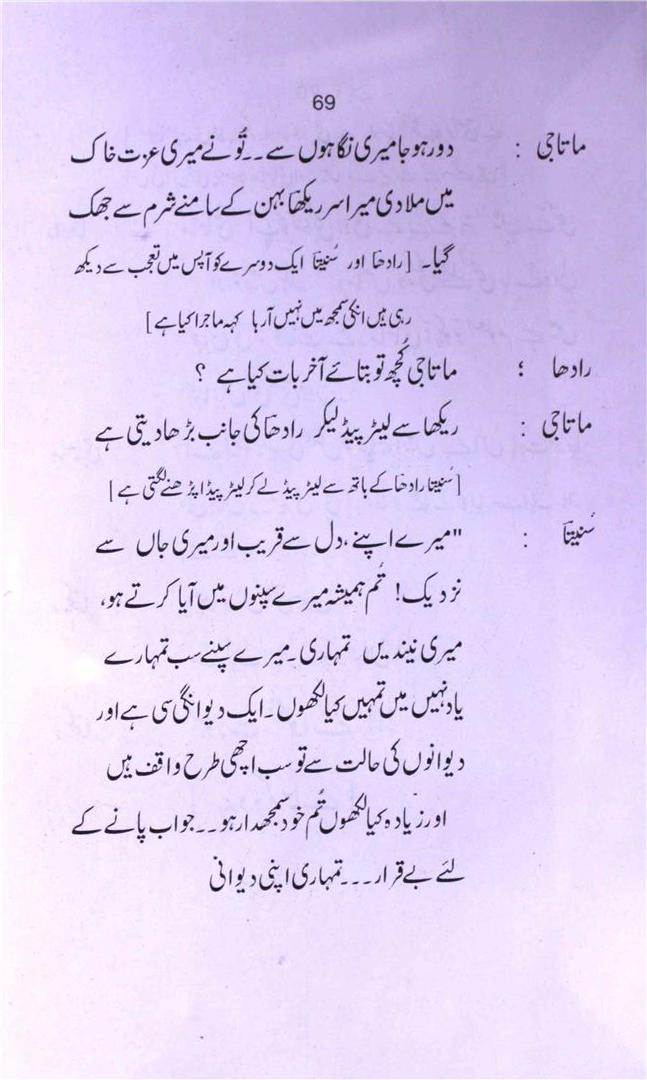 69
ماتاجی : دور ہو جا میری نگاہوں سے ۔۔ تُو نے میری عزت خاک
میں ملا دی میرا سر ریکھا بہن کے سامنے شرم سے جھک
گیا۔ [رادھا اور سُنیتا ایک دوسرے کو آپس میں تعجب سے دیکھ
رہی ہیں انکی سمجھ میں نہیں آرہا کہہ ماجرا کیا ہے]
رادھا ؛ ماتاجی کُچھ تو بتائے آخر بات کیا ہے ؟
ماتاجی : ریکھا سے لیٹر پیڈ لیکر رادھا کی جانب بڑھا دیتی ہے
[سُنیتا رادھا کے ہاتھ سے لیٹر پیڈ لے کر لیٹر پیڈ اپڑھنے لگتی ہے]
سُنیتا : "میرے اپنے، دل سے قریب اور میری جاں سے
نزدیک! تُم ہمیشہ میرے سپنوں میں آیا کرتے ہو،
میری نیندیں تمہاری۔ میرے سپنے سب تمہارے
یاد نہیں میں تمہیں کیا لکھوں۔ ایک دیوانگی سی ہے اور
دیوانوں کی حالت سے تو سب اچھی طرح واقف ہیں
اور زیادہ کیا لکھوں تُم خود سمجھدار ہو ۔۔ جواب پانے کے
لئے بے قرار ۔۔۔ تمہاری اپنی دیوانی